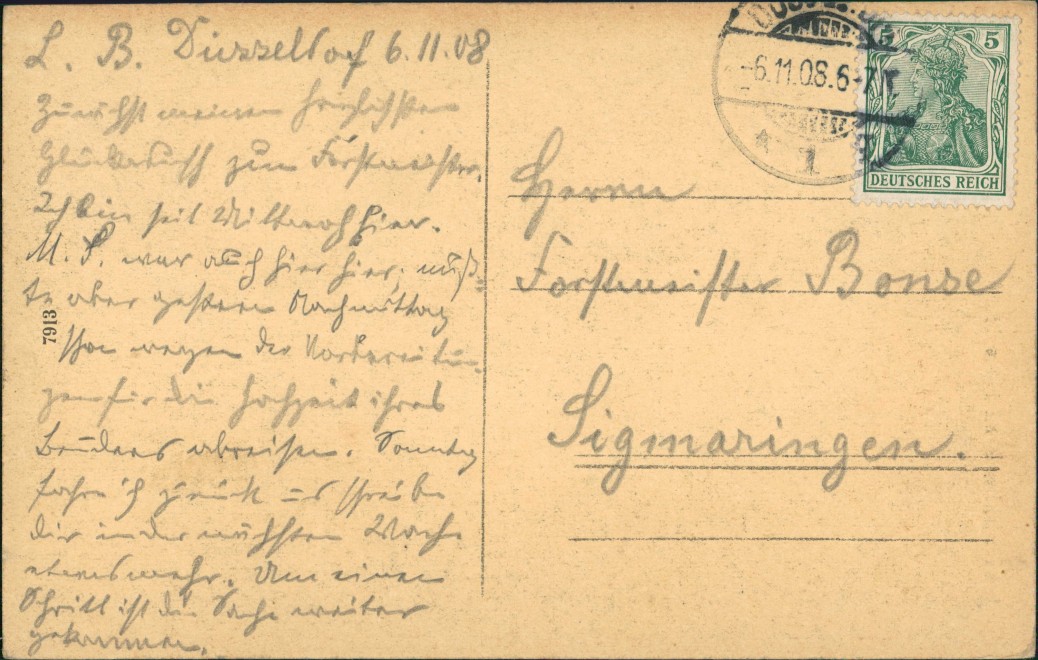 L. B. Düsseldorf 6.11.08
Zunächst meinen herzlichsten
Glückwunsch zum Forstmeister.
Ich bin seit Mittwoch hier.
M. P. war auch hier, muß-
te aber gestern Nachmittag
schon wegen der Vorbereitun-
gen für die Hochzeit ihres
Bruders abreisen. Sonntag
fahre ich zurück u. schreibe
dir in der nächsten Woche
etwas mehr. Um einen
Schritt ist die Sache weiter
gekommen.
7913
-6.11.08.6-7
* 1
5 5
DEUTSCHES REICH
Herrn
Forstmeister Bonse
Sigmaringen.